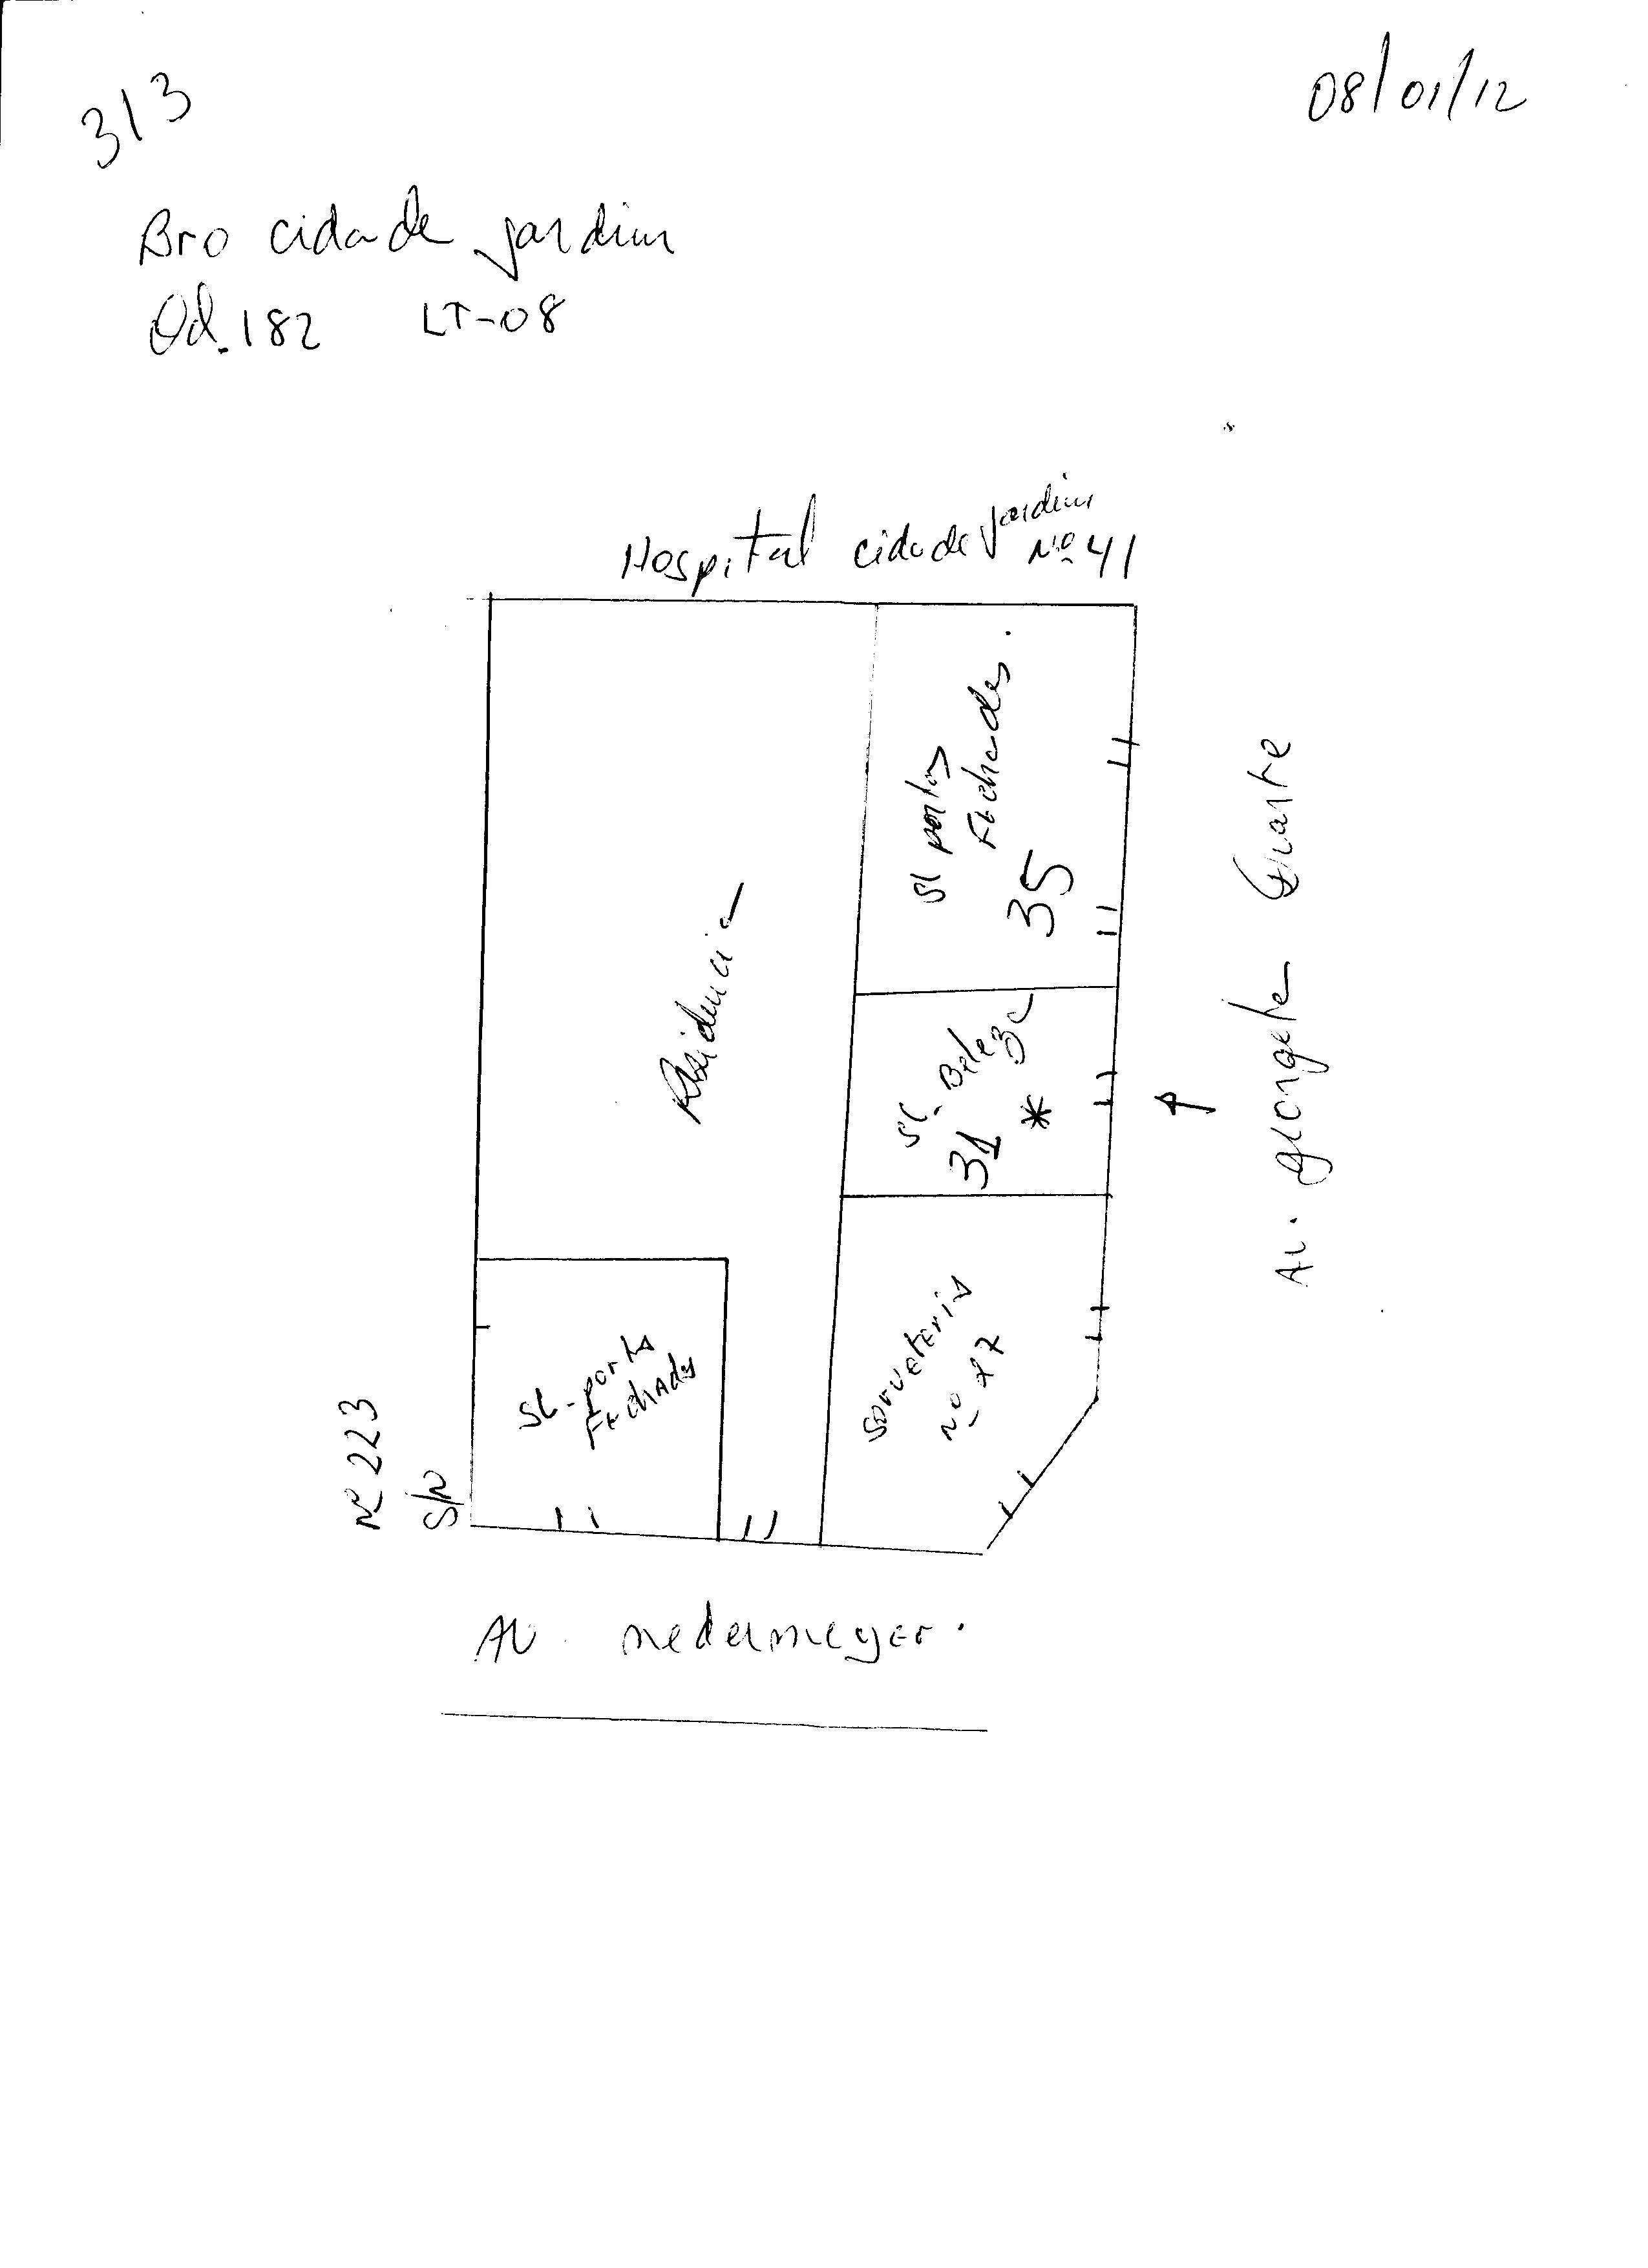 313
08/01/12
Bro cidade jardim
Qd. 182 LT-08
Hospital cidade jardim
Nº 41
SL portas
Fechadas.
35
Residencia
SL- Beleza
31 *
Av. georgete Duarte
SL-porta
Fechada
Sorveteria
nº 27
Nº 223
S/N
AV. nedermeyer.